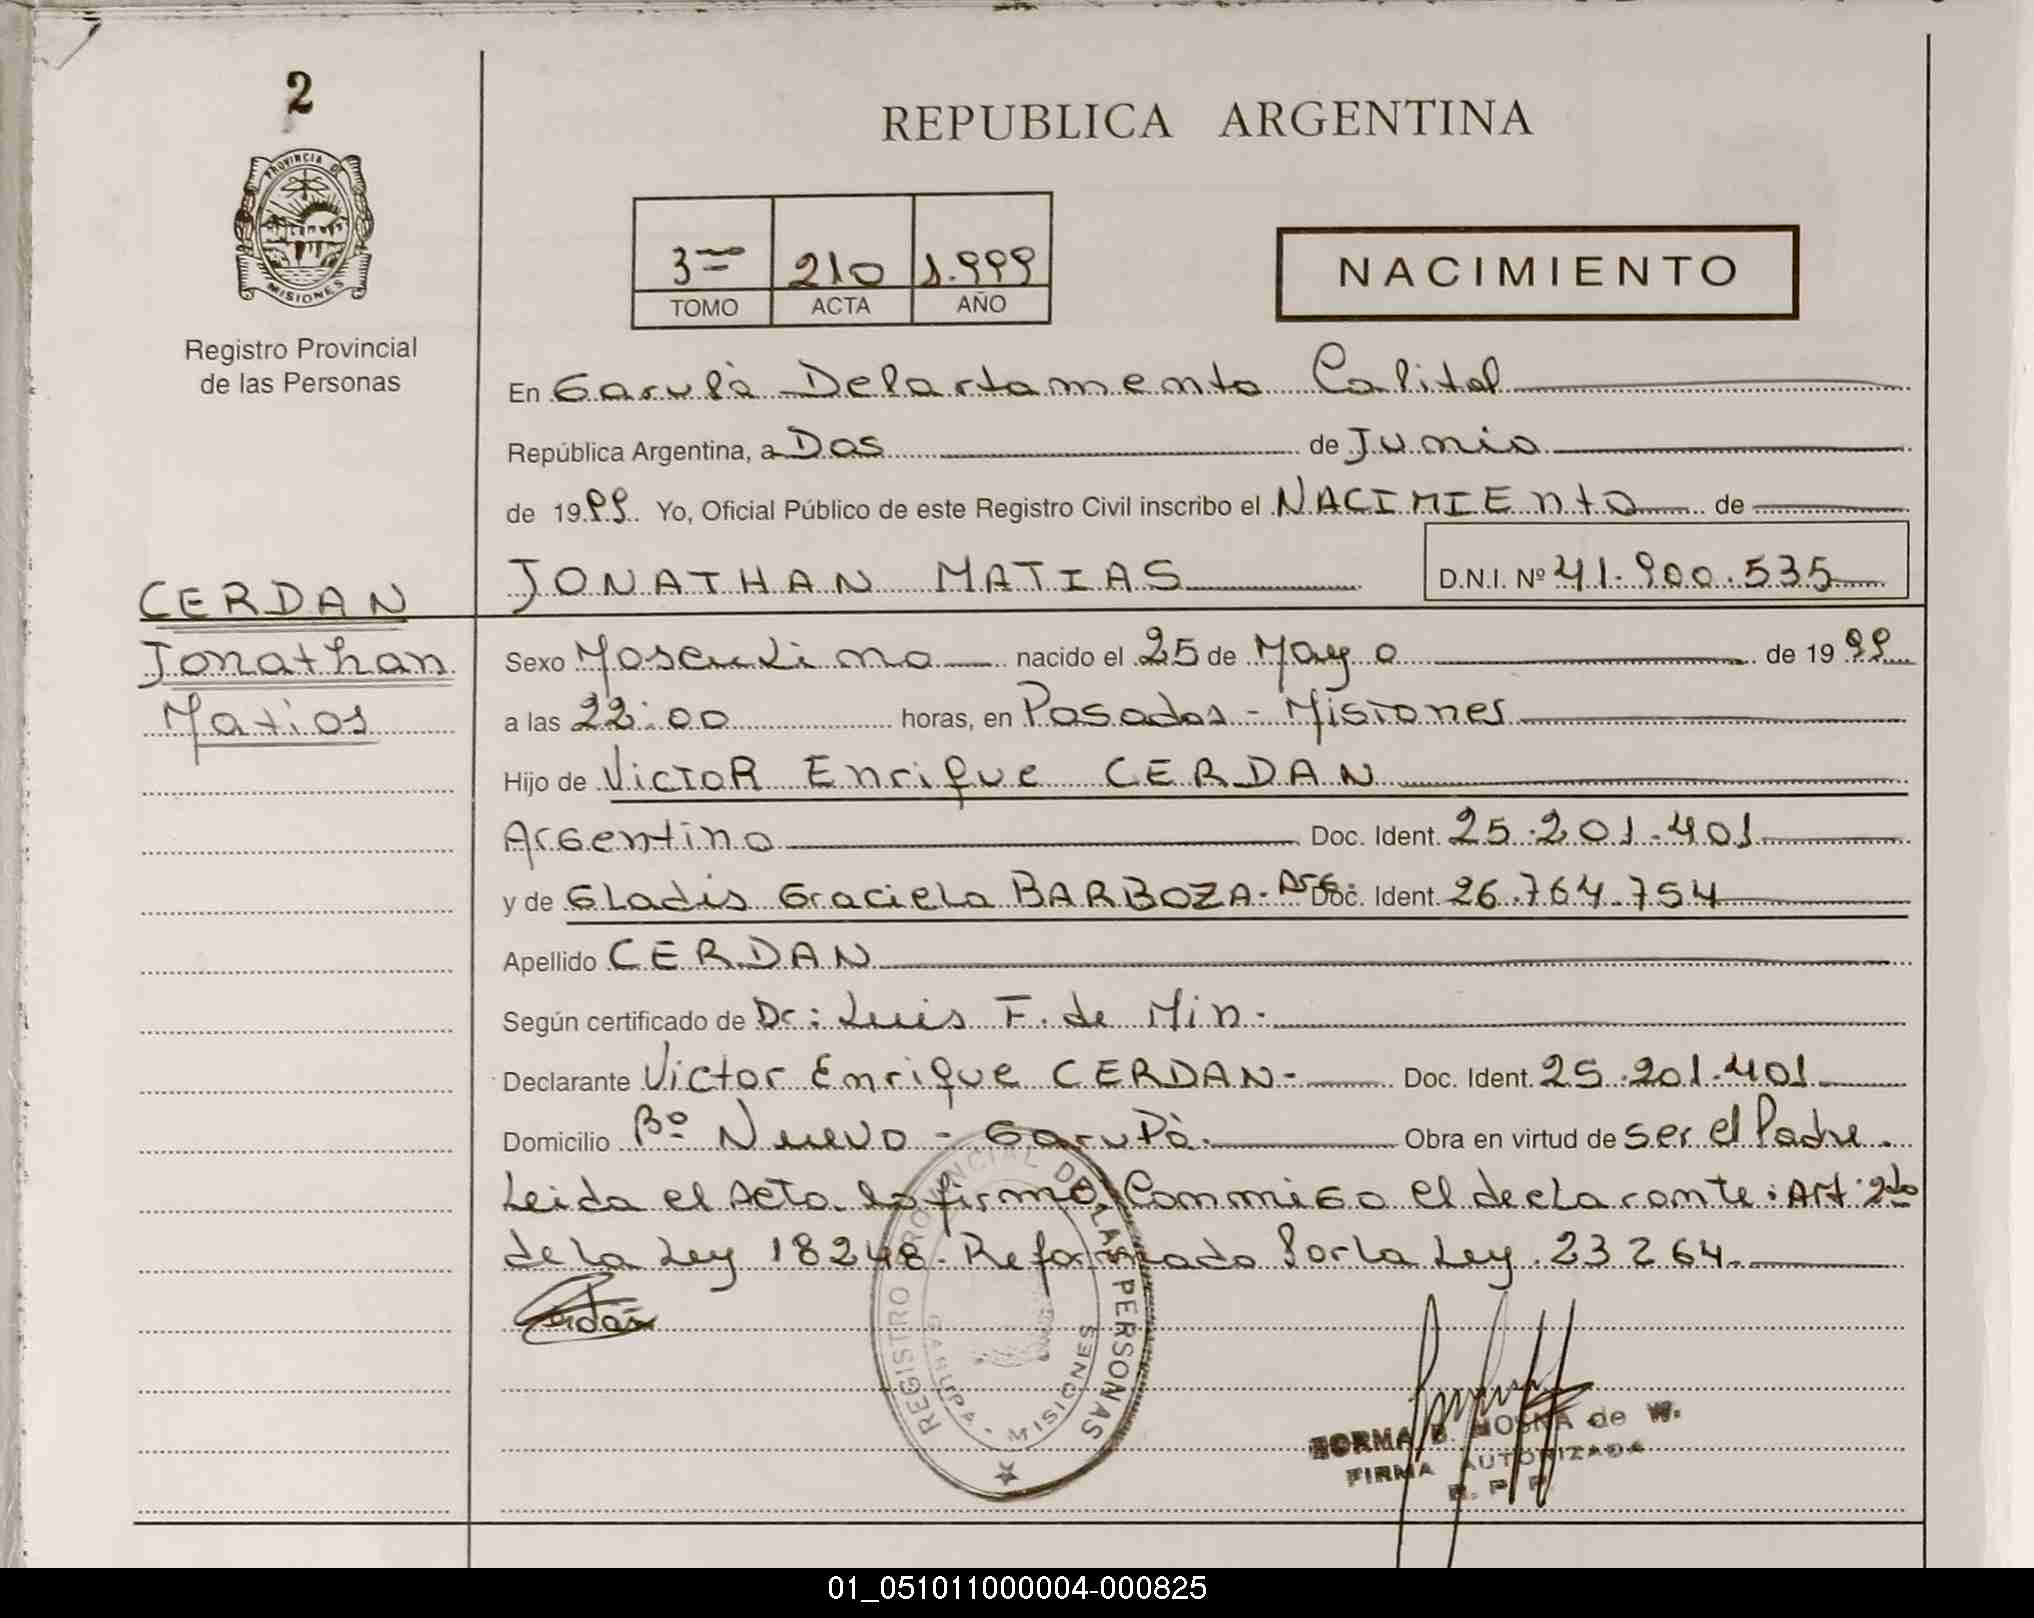 2
PROVINCIA DE
MISIONES
Registro Provincial
de las Personas
CERDAN
Jonathan
Matias
REPUBLICA ARGENTINA
3ero 210 1.999
TOMO ACTA AÑO
NACIMIENTO
En Garupà Departamento Capital
República Argentina, a Dos de Junio
de 1999 Yo, Oficial Público de este Registro Civil inscribo el NACIMIEnto de
JONATHAN MATIAS D.N.I. Nº 41.900.535
Sexo Masculino nacido el 25 de Mayo de 1999
a las 22:00 horas, en Posadas - Misiones
Hijo de Victor Enrique CERDAN
Argentino Doc. Ident. 25.201.401
y de Gladis Graciela BARBOZA - Arg. Doc. Ident. 26.764.754
Apellido CERDAN
Según certificado de Dr: Luis F. de Min.
Declarante Victor Enrique CERDAN - Doc. Ident. 25.201.401
Domicilio Bº Nuevo - Garupà. Obra en virtud de ser el Padre.
Leida el Acta la firma Conmigo el declarante: Art. 2do
de la Ley 18248. Reformado Por la Ley. 23264.
Cerdan
REGISTRO PROVINCIAL DE LAS PERSONAS
GARUPA - MISIONES
NORMA B. MOSNA de W.
FIRMA AUTORIZADA
R. P. P.
01_051011000004-000825